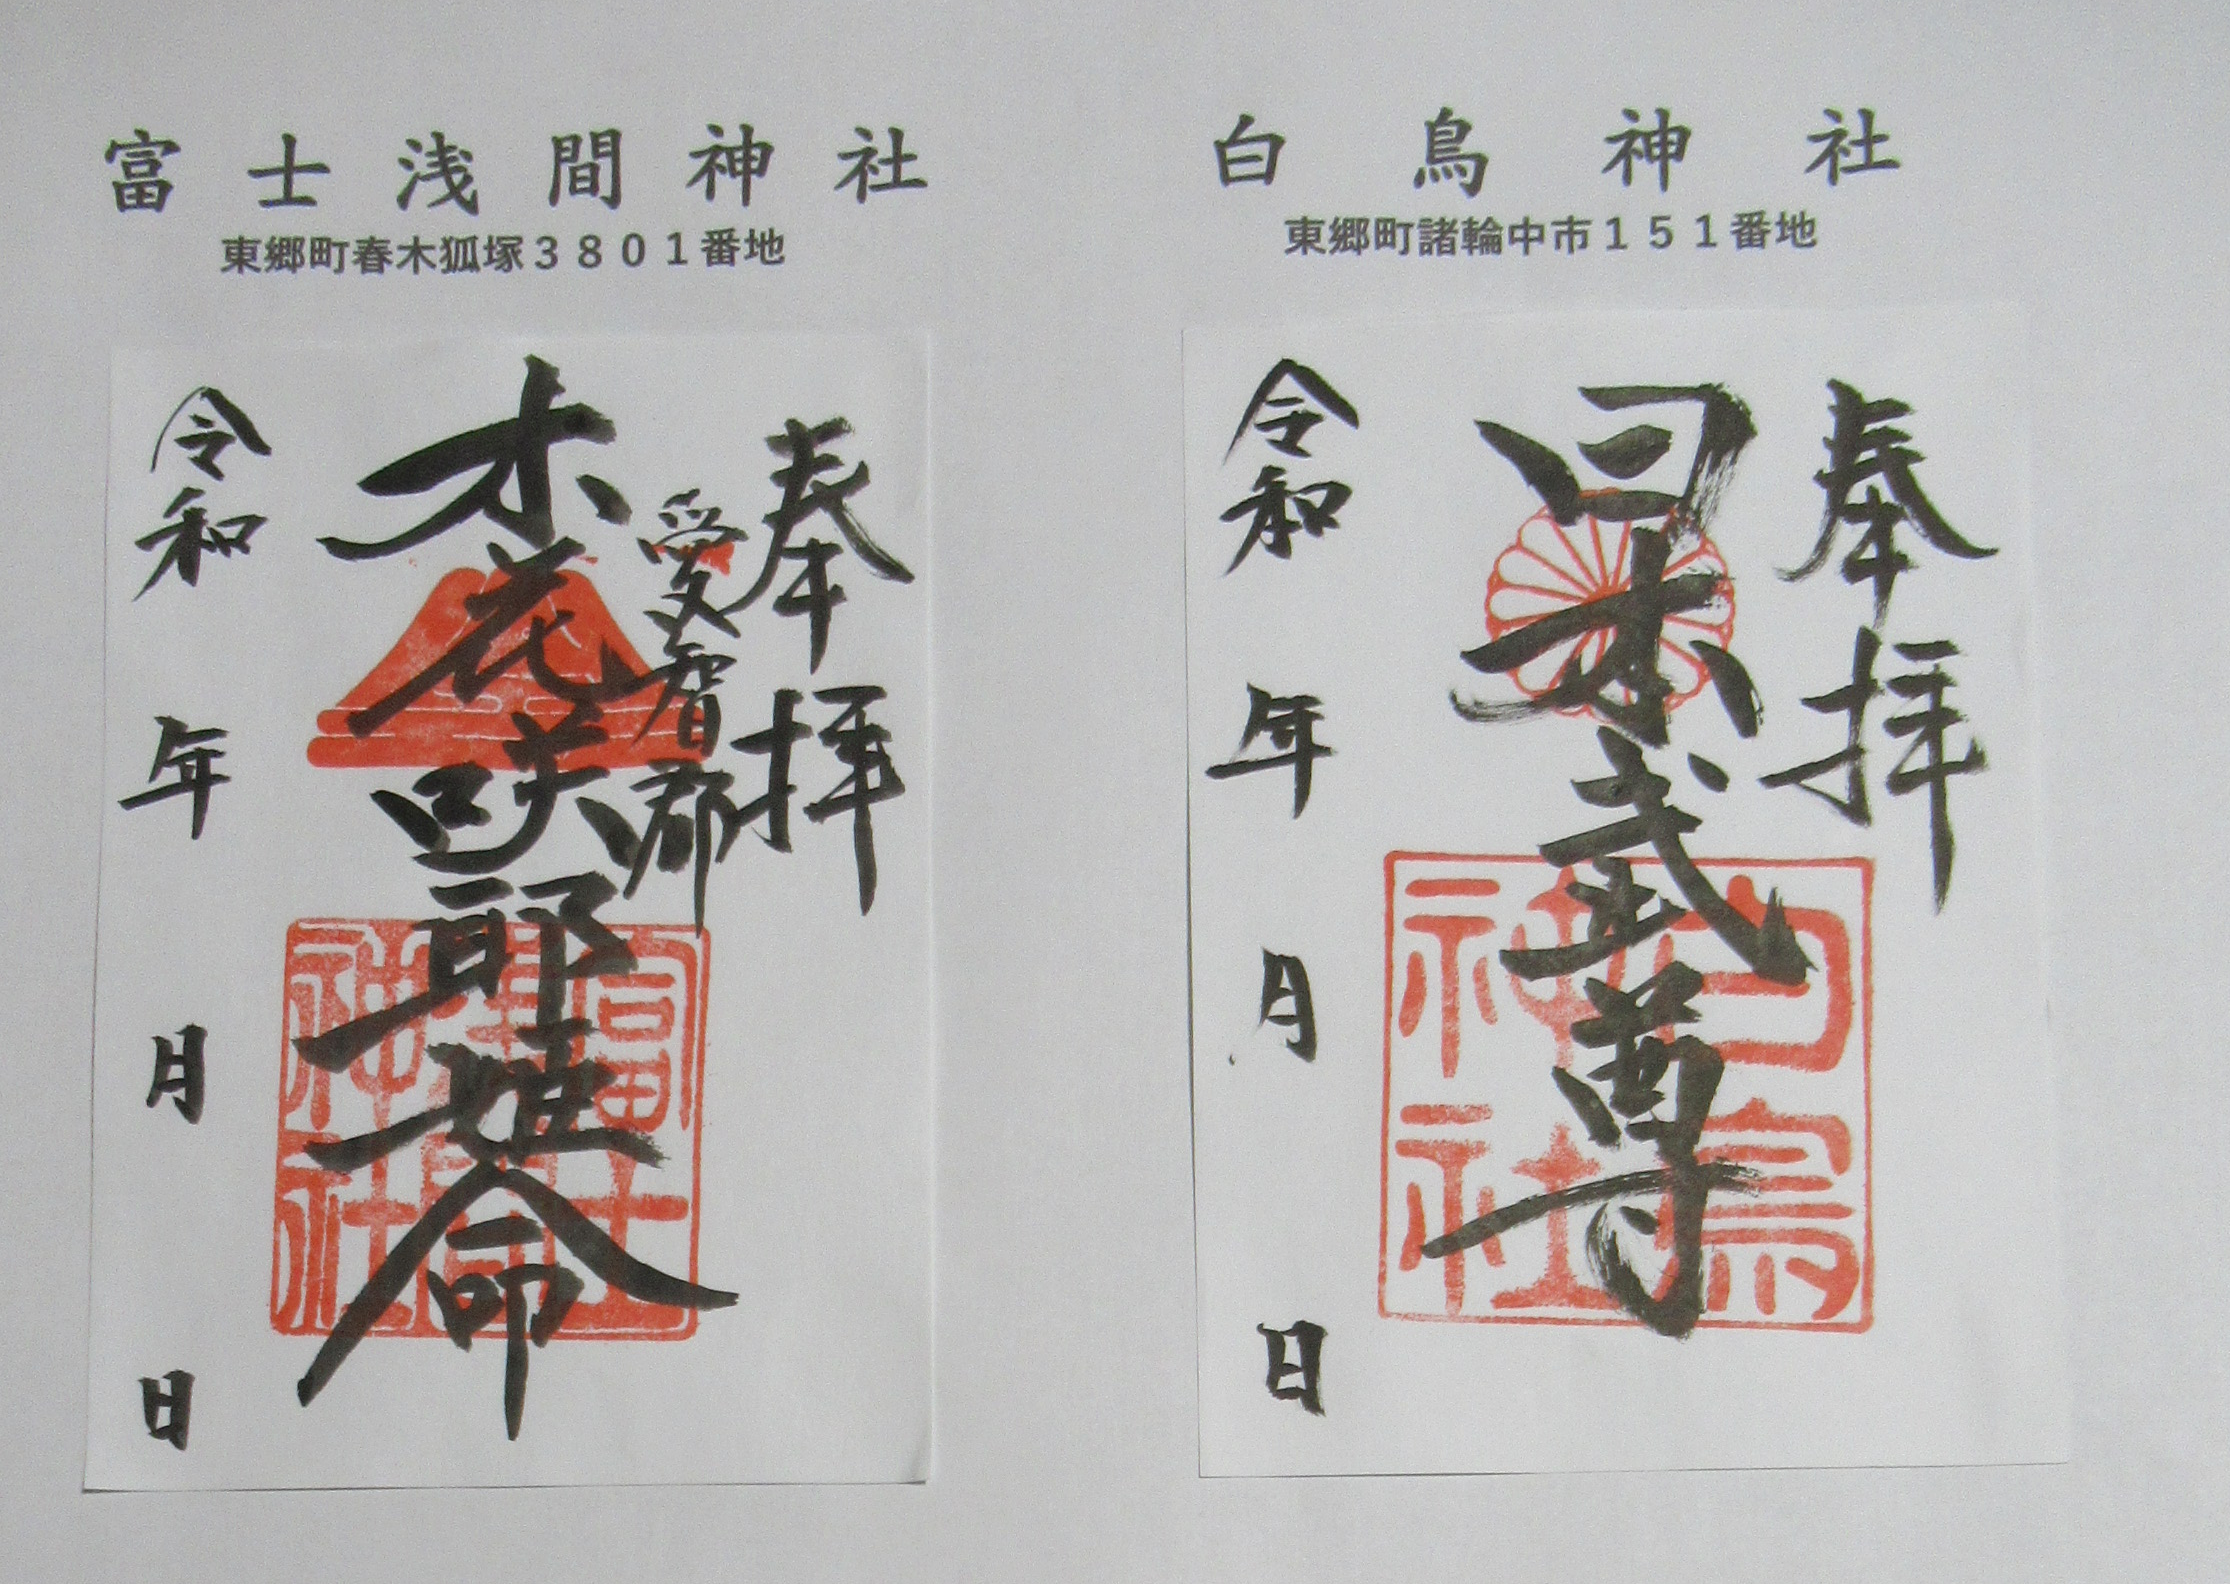 富士浅間神社
東郷町春木狐塚3801番地
奉拝
愛智郡
木花咲耶姫命
富士
浅間
神社
令和 年 月 日
白鳥神社
東郷町諸輪中市151番地
奉拝
日本武尊
白鳥
神社
令和 年 月 日